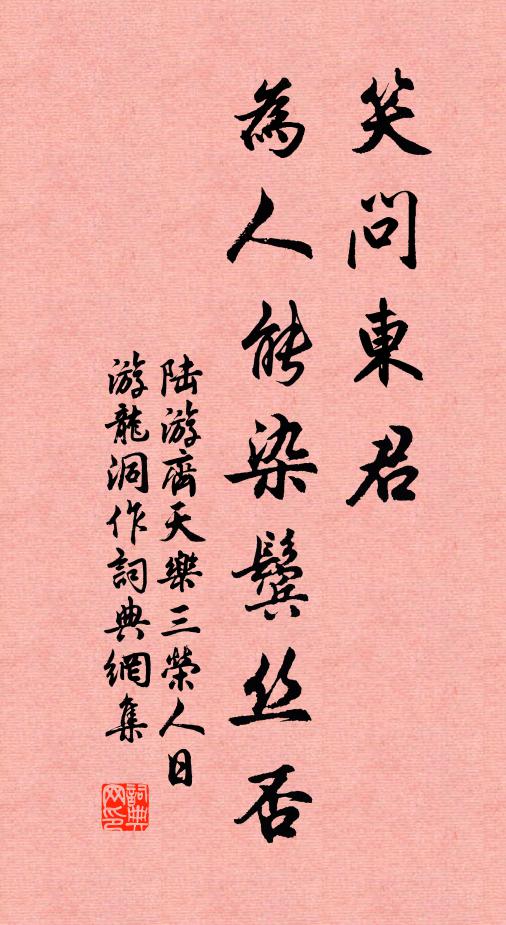 笑問東君
為人能染鬢丝否
陆游齊天樂三榮人日
游龍洞作詞典網集
詞典
网印